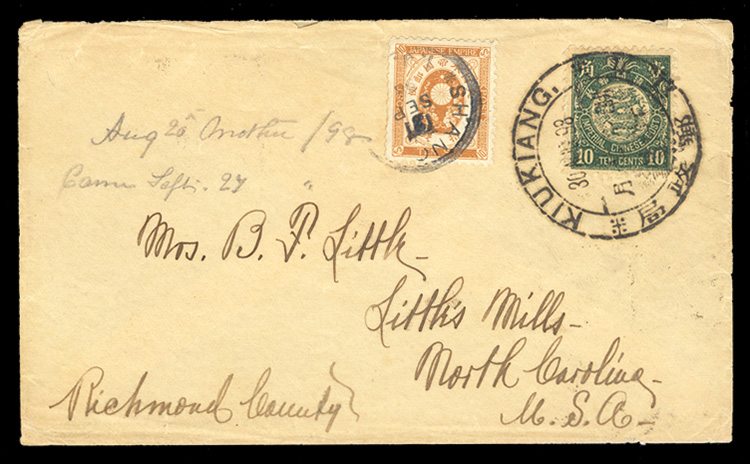 JAPANESE EMPIRE
SHANG
SEP
KIUKIANG.
30
98
局
月
IMPERIAL CHINESE POST
10 TEN CENTS 10
Aug 25 Mother /98
Came Sept. 27 "
Mrs. B. F. Little
Little's Mills-
North Carolina-
U.S.A-
Richmond County